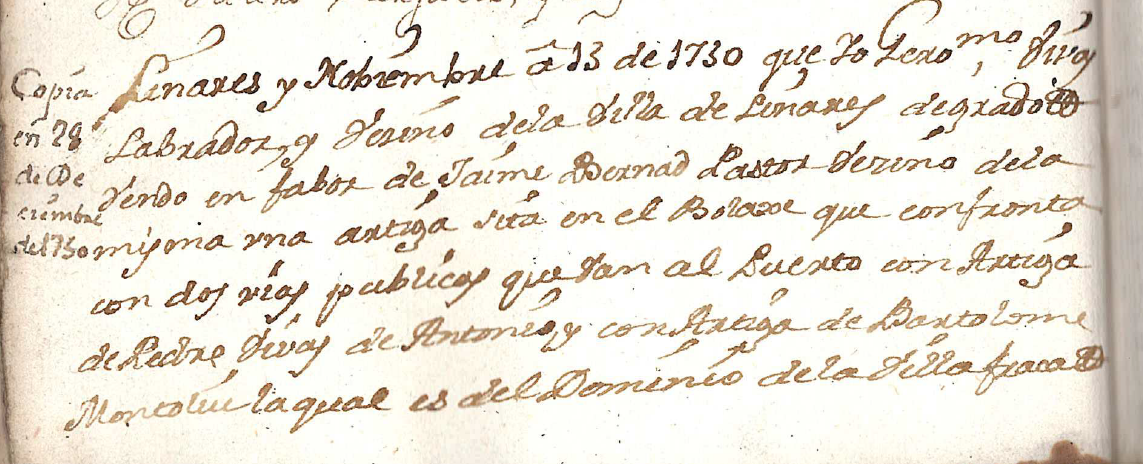 Copia
en 28
de De
ciembre
del 1730
Linares y Nobiembre a 13 de 1730 que Yo Gerommo Vivas
Labrador, y Vezino dela Villa de Linares de grado &
Vendo en fabor de Jaime Bernad Pastor Vezino dela
misma vna artiga sita en el Bolaxe que confronta
con dos vias publicas que van al Puerto con Artiga
de Pedro Vivas de Antonio, y con Artiga de Bartolome
Montoliu laqual es del Dominio dela Villa fraca &